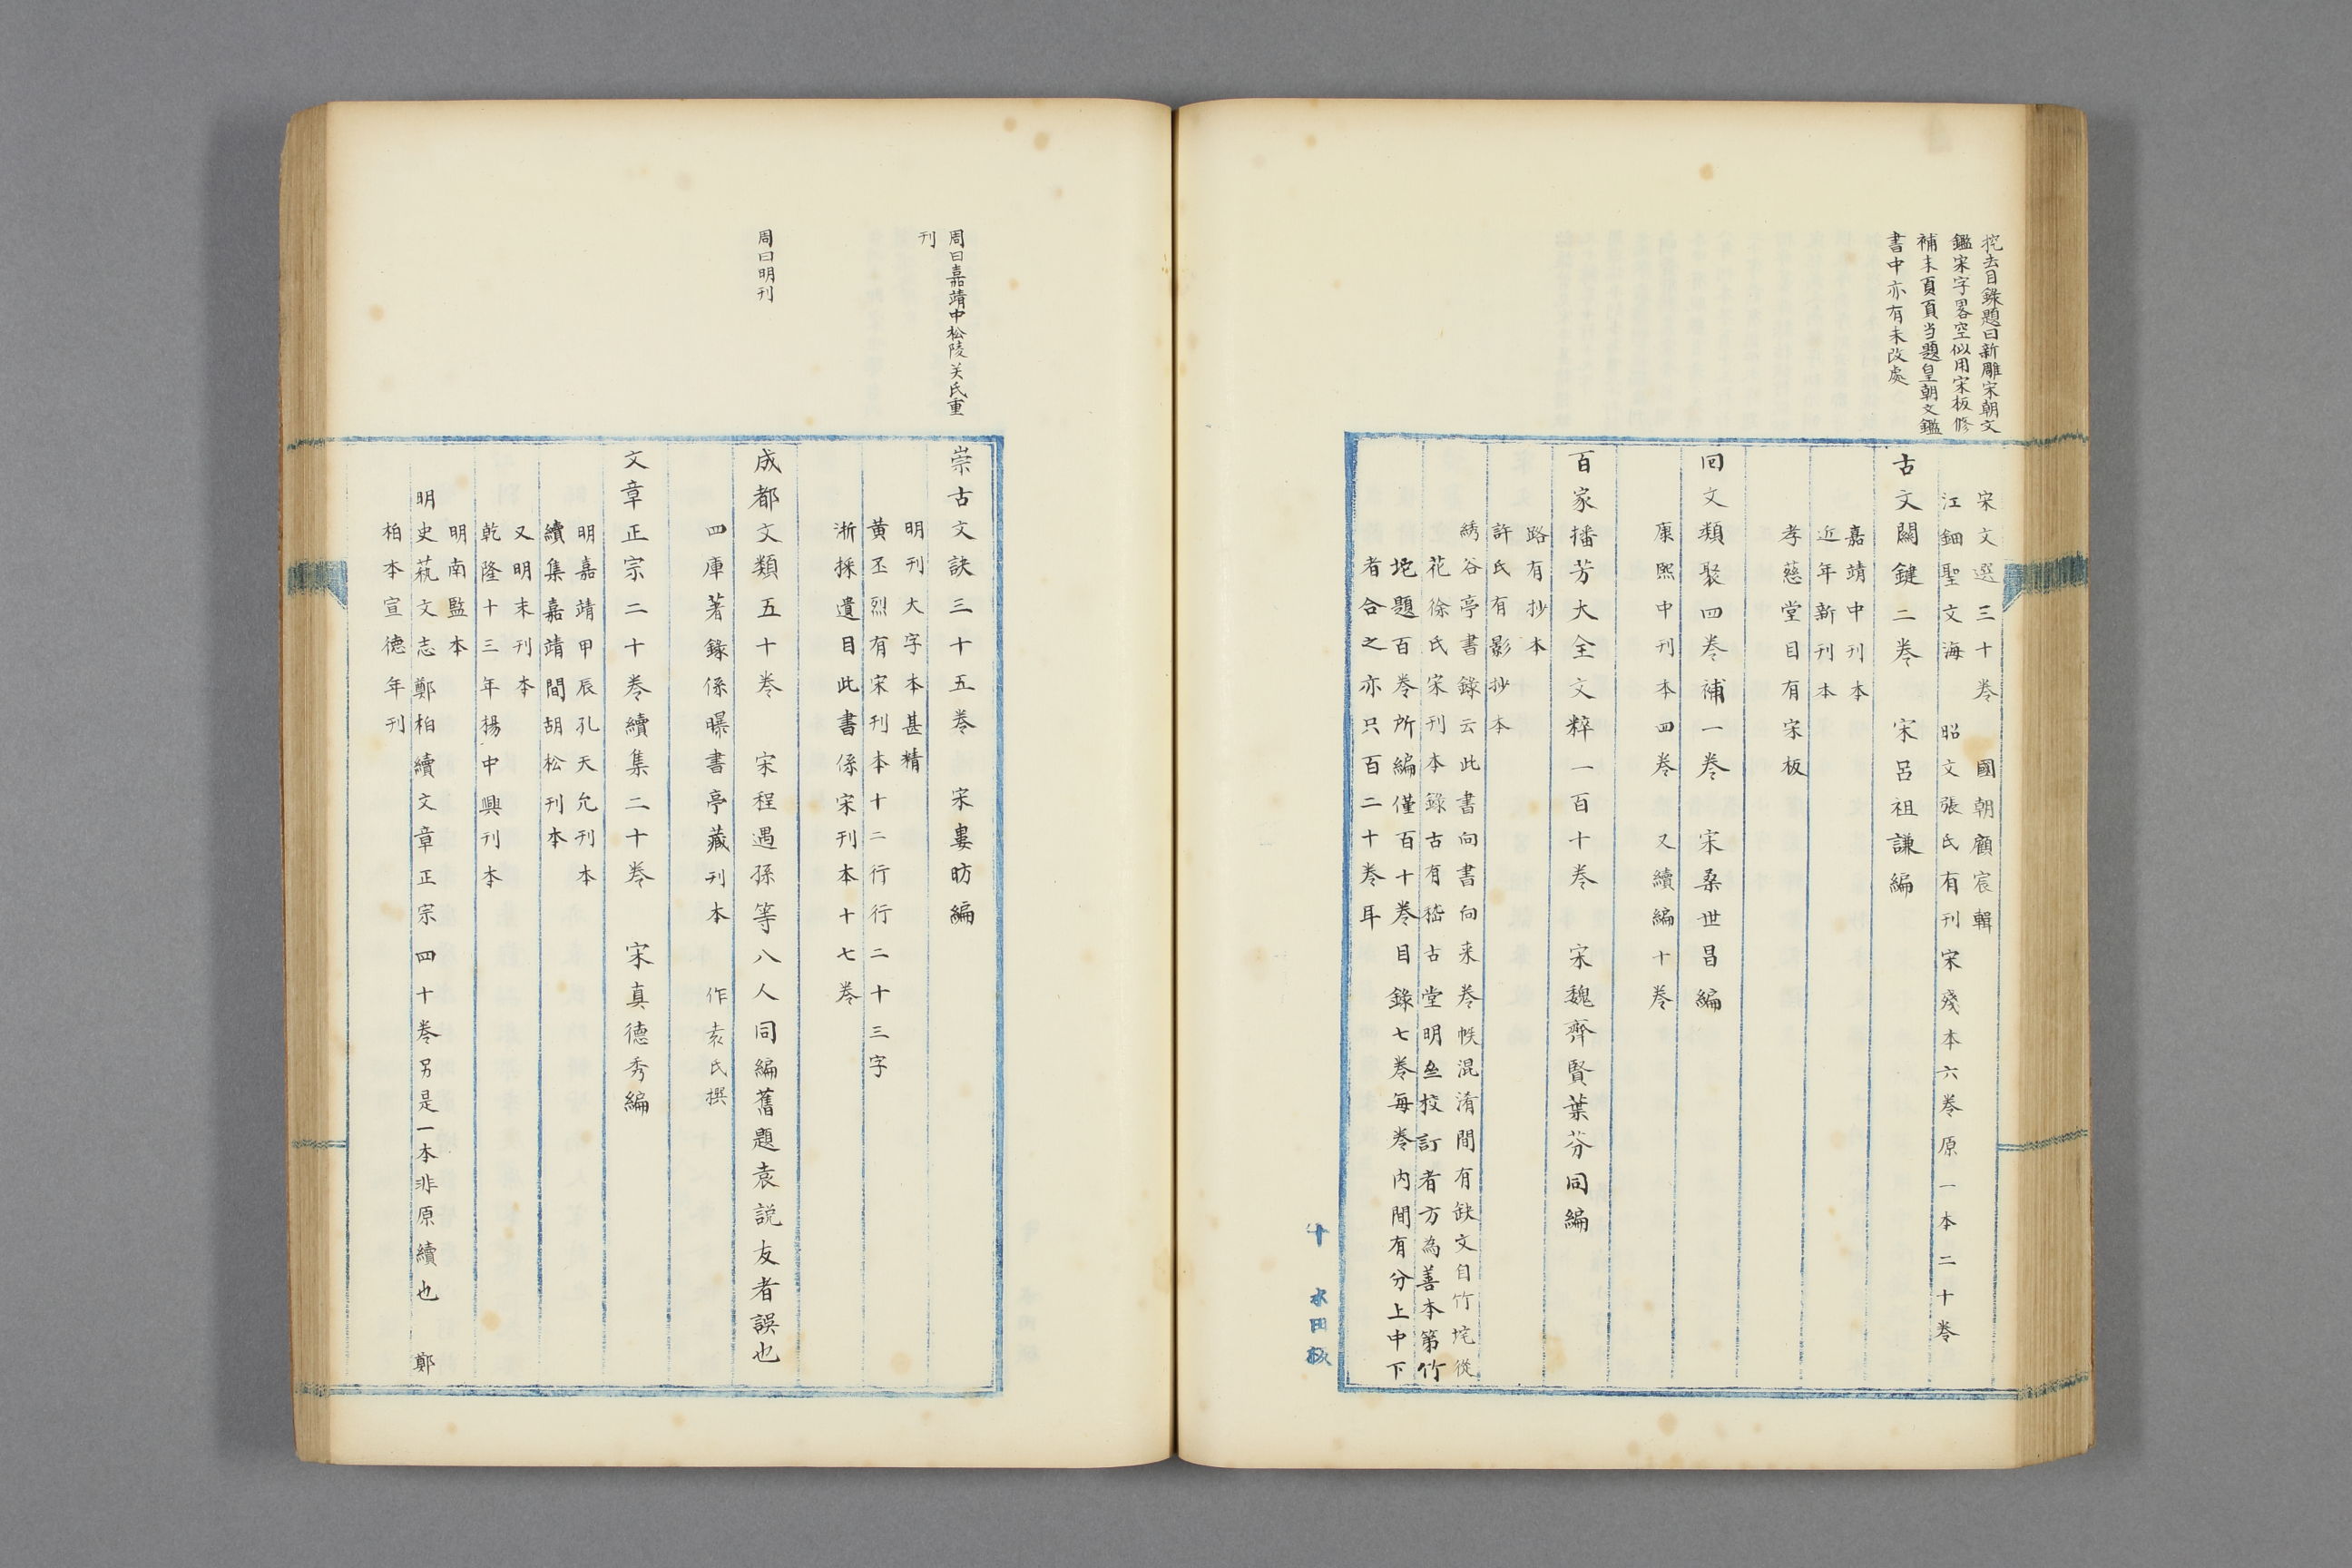 挖去目錄題曰新雕宋朝文
鑑宋字畧空似用宋板修
補末頁頁当題皇朝文鑑
書中亦有未改處
宋文選三十卷 國朝顧宸輯
江鈿聖文海 昭文張氏有刊宋殘本六卷原一本二十卷
古文關鍵二卷 宋呂祖謙編
嘉靖中刊本
近年新刊本
孝慈堂目有宋板
回文類聚四卷補一卷 宋桑世昌編
康熙中刊本四卷 又續編十卷
百家播芳大全文粹一百十卷 宋魏齊賢葉芬同編
路有抄本
許氏有影抄本
綉谷亭書錄云此書向書向来卷帙混淆間有缺文自竹垞從
花徐氏宋刊本錄古有嵇古堂明亝校訂者方為善本第竹
垞題百卷所編僅百十卷目錄七卷每卷内間有分上中下
者合之亦只百二十卷耳
十 水田
周曰嘉靖中松陵关氏重
刊
周曰明刊
崇古文訣三十五卷 宋婁昉編
明刊大字本甚精
黄丕烈有宋刊本十二行行二十三字
浙採遺目此書係宋刊本十七卷
成都文類五十卷 宋程遇孫等八人同編舊題袁説友者誤也
四庫著錄係曝書亭藏刊本 作袁氏撰
文章正宗二十卷續集二十卷 宋真德秀編
明嘉靖甲辰孔天允刊本
續集嘉靖間胡松刊本
又明末刊本
乾隆十三年楊中興刊本
明南監本
明史萟文志鄭柏續文章正宗四十卷另是一本非原續也 鄭
柏本宣德年刊